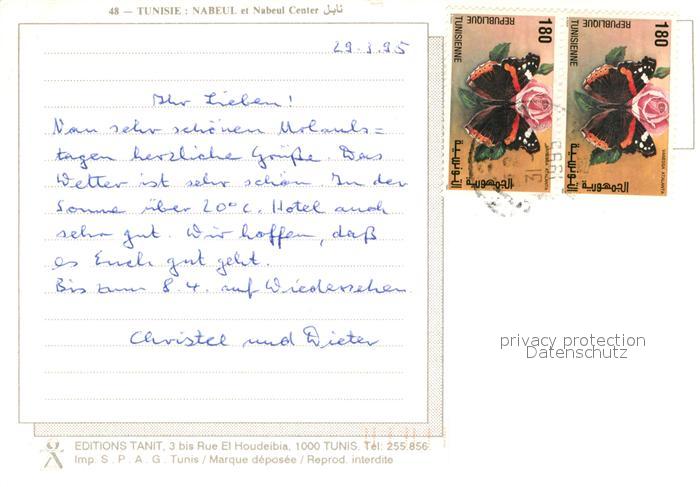 48 — TUNISIE : NABEUL et Nabeul Center نابل
29.3.95
Ihr Lieben!
Von sehr schönen Urlaubs=
tagen herzliche Grüße. Das
Wetter ist sehr schön. In der
Sonne über 20°C. Hotel auch
sehr gut. Wir hoffen, daß
es Euch gut geht.
Bis zum 8.4. auf Wiedersehen
Christel und Dieter
EDITIONS TANIT, 3 bis Rue El Houdeibia, 1000 TUNIS. Tél: 255.856
Imp. S.P.A.G. Tunis / Marque déposée / Reprod. interdite
REPUBLIQUE TUNISIENNE
180
VANESSA ATALANTA
الجمهورية التونسية
REPUBLIQUE TUNISIENNE
180
VANESSA ATALANTA
الجمهورية التونسية
privacy protection
Datenschutz